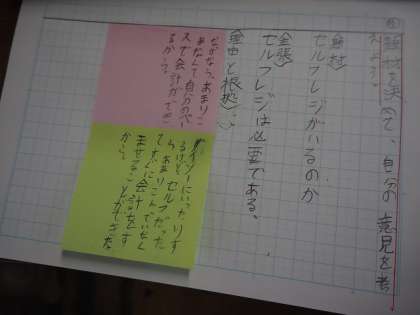 題材を決めて、自分の意見を考
えよう。
〈題材〉
セルフレジがいるのか
〈主張〉
セルフレジは必要である。
〈理由と根拠〉
なぜなら、あまりこ
まなんて自分のペー
スで会計ができ
るから。
ダイソーにいったりす
るけど、セルフだった
らあまりこんでいなく
てすぐに会計
ませることができた
から。